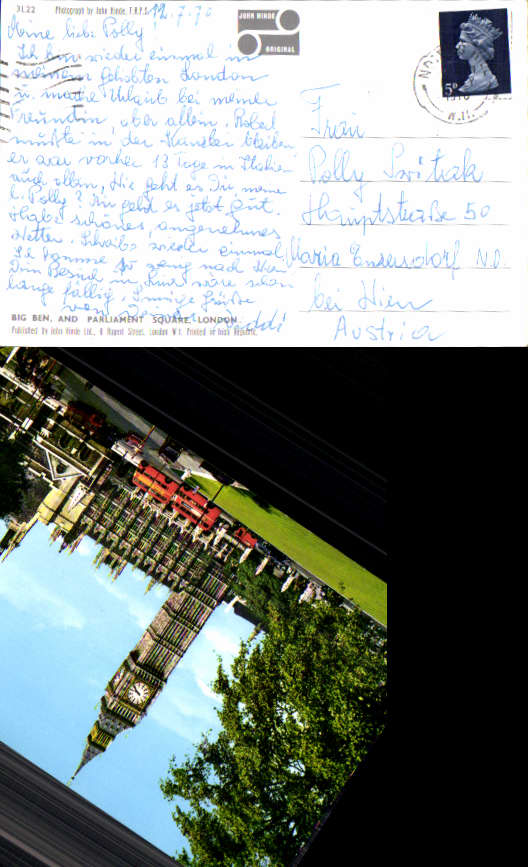 3L22 Photograph by John Hinde, F.R.P.S.
12.7.70
JOHN HINDE
ORIGINAL
5D
Meine liebe Polly!
Ich bin wieder einmal in
meinem geliebten London
u. mache Urlaub bei meiner
Freundin, aber allein. Robert
mußte in der Kanzlei bleiben
er war vorher 13 Tage in Italien
auch allein. Wie geht es Dir meine
l. Polly? Mir geht es jetzt gut.
Habe schönes, angenehmes
Wetter. Schreibe wieder einmal.
Ich komme
Dein Besuch in wäre schon
lange fällig. Innige Grüße
von
Frau
Polly
Hauptstraße 50
Maria Enzersdorf N.Ö.
bei Wien
Austria
BIG BEN, AND PARLIAMENT SQUARE, LONDON.
Published by John Hinde Ltd., 8 Regent Street, London W1. Printed in Irish Republic.